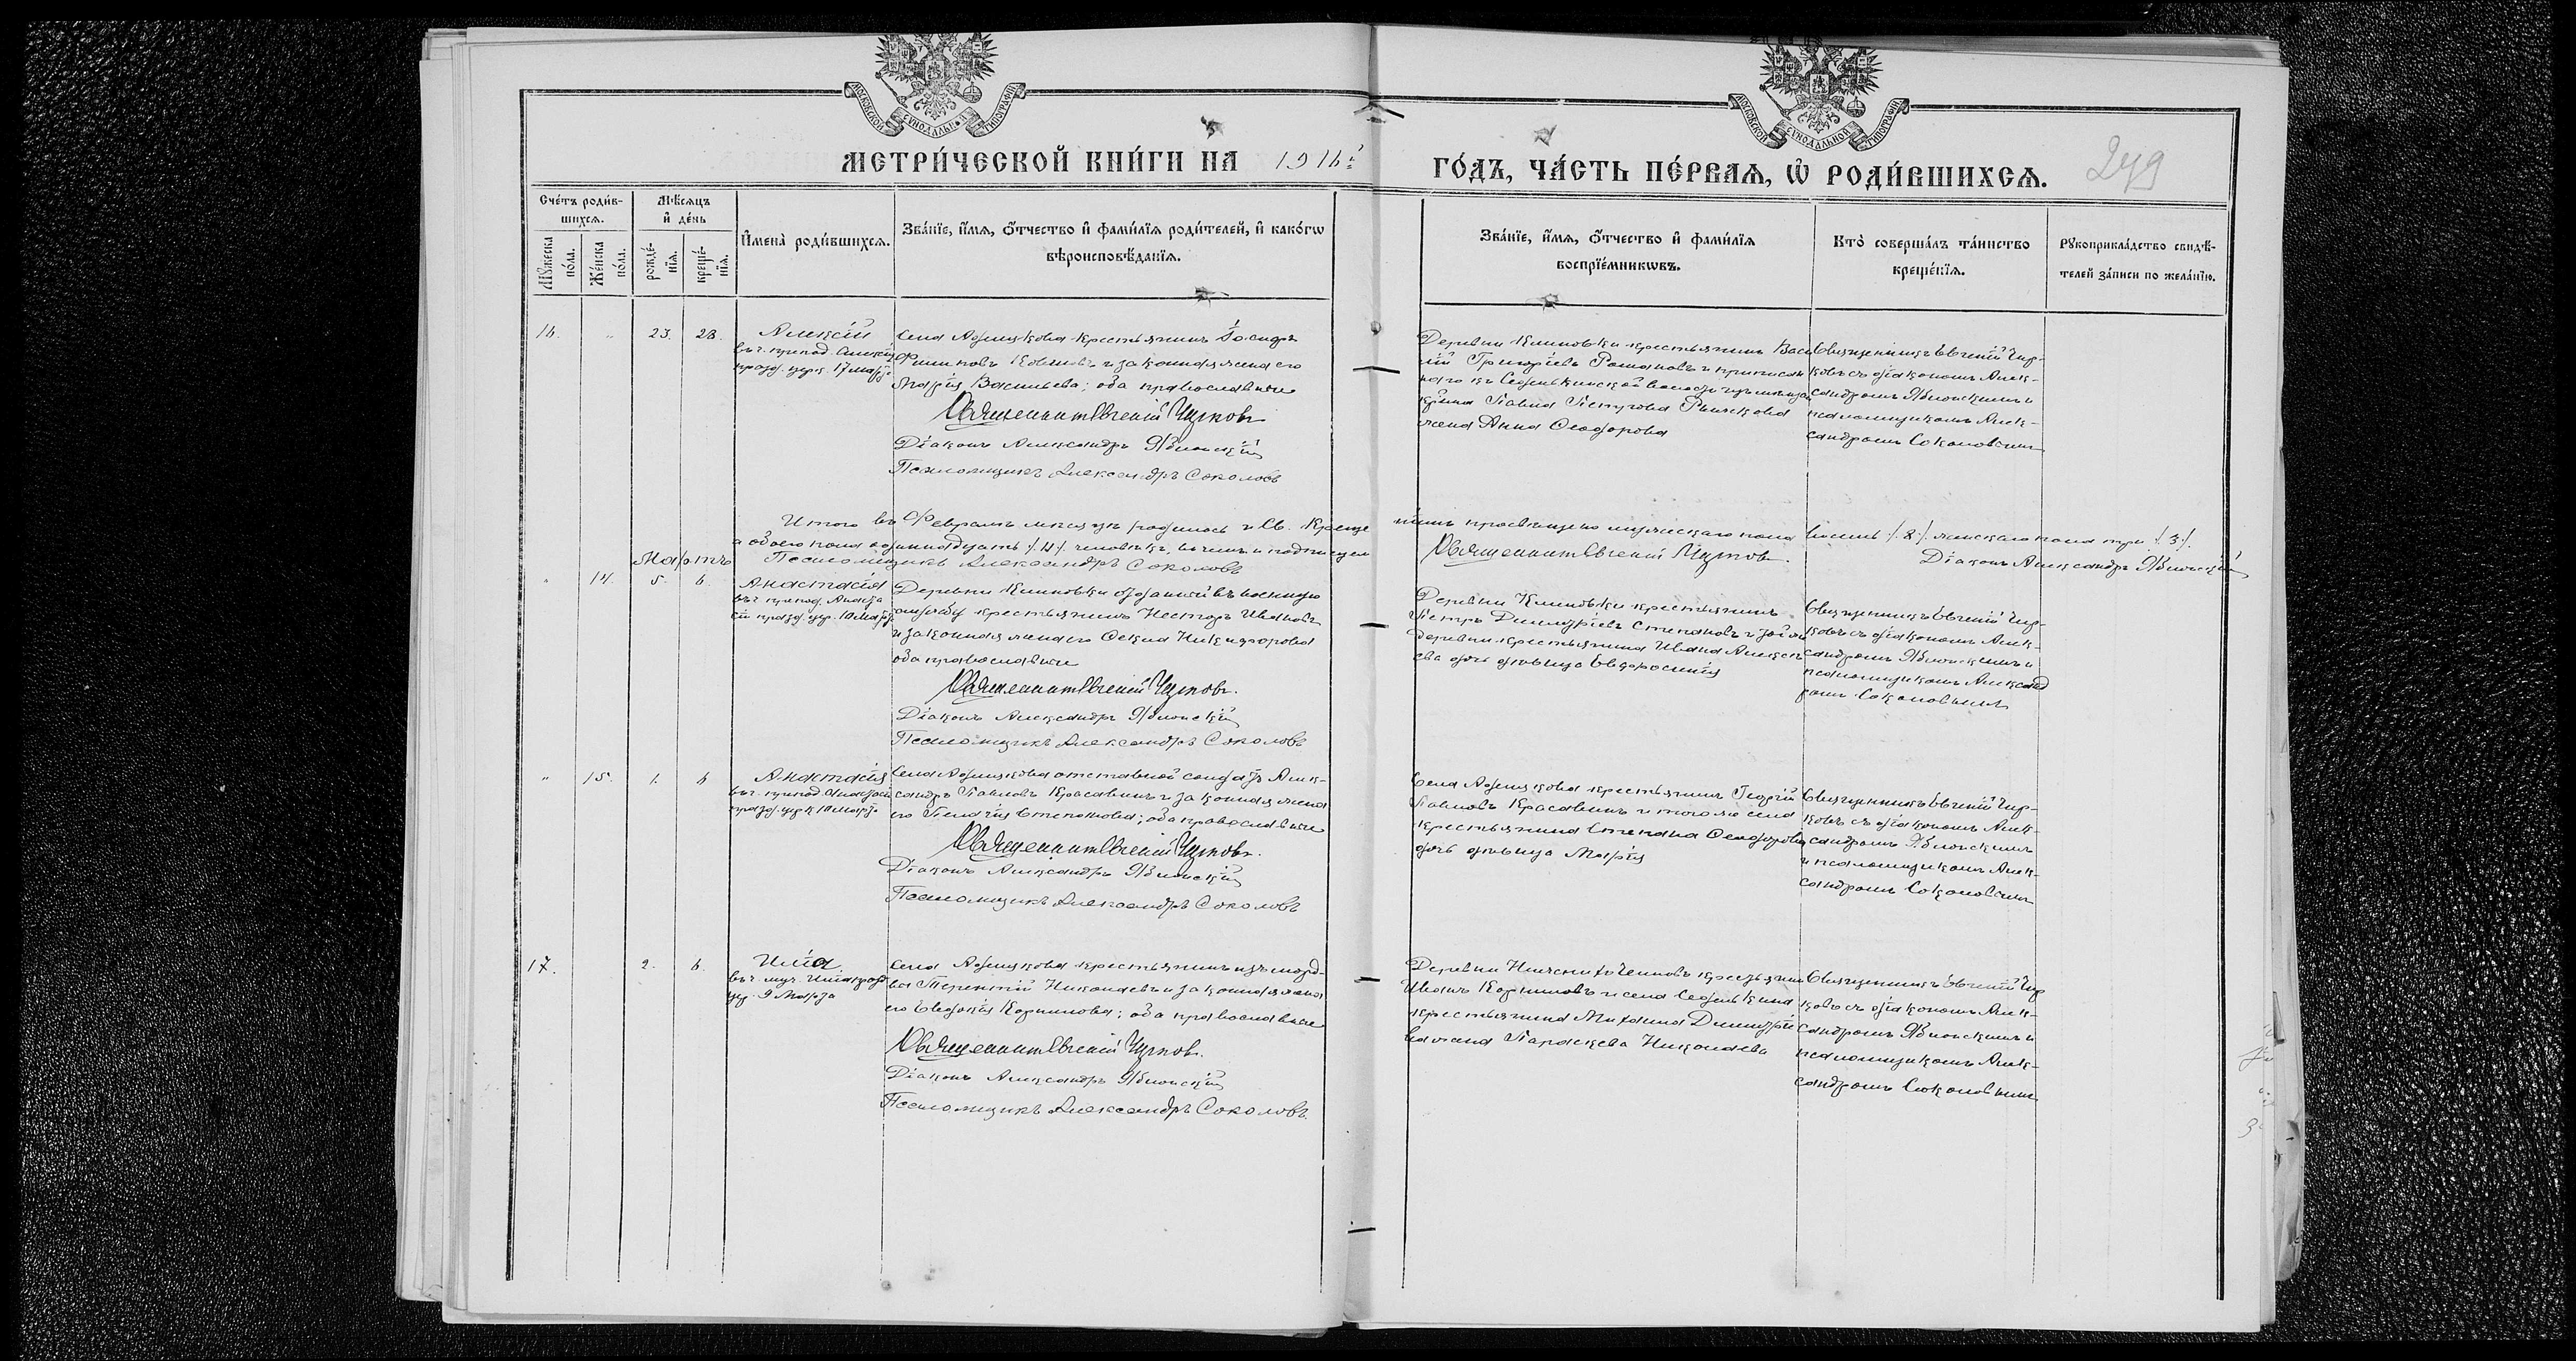 МОСКОВСКОЙ СѴНОДАЛЬНОЙ ТИПОГРАФІИ
МОСКОВСКОЙ СѴНОДАЛЬНОЙ ТИПОГРАФІИ
МЕТРИ́ЧЕСКОЙ КНИ́ГИ НА 1916й
ГО́ДЪ, ЧА́СТЬ ПЕ́РВАѦ, Ѡ҆ РОДИ́ВШИХСѦ.
279
Сче́тъ роди́в-
шихсѧ.
Мѣ́сѧцъ
и҆ де́нь
И҆мена̀ роди́вшихсѧ.
Зва́нїе, и҆́мѧ, ѻ҆́тчество и҆ фами́лїѧ роди́телей, и҆ како́гѡ
вѣроисповѣ́данїѧ.
Мꙋ́жеска
по́ла.
Же́нска
по́ла.
рожде́-
нїѧ.
креще́-
нїѧ.
Зва́нїе, и҆́мѧ, ѻ҆́тчество и҆ фами́лїѧ
воспрїе́мникѡвъ.
Кто̀ соверша́лъ та́инство
креще́нїѧ.
Рꙋкоприкла́дство свидѣ́-
телей за́писи по жела́нїю.
16. " 23. 28. Алексій
въ ч. препод. Алексія
празд. церк. 17 марта
Села крестьянинъ Іосифъ
Филиповъ и законная жена его
Марія Васильева; оба православные
Священникъ Евгеній Чирковъ
Діаконъ Александръ Яблонскій
Псаломщикъ Александръ Соколовъ
Деревни Климовки крестьянинъ Васи
лій Григоріевъ Романовъ и приписан
наго къ волости изъ мѣщан
Павла Петрова Рычкова
жена Анна Ѳеодорова
Священникъ Евгеній Чир-
ковъ съ діакономъ Алек-
сандромъ Яблонскимъ и
псаломщикомъ Алек-
сандромъ Соколовымъ
Итого въ Февралѣ мѣсяцѣ родилось и Св. Креще
ніемъ просвѣщено мужескаго пола восемь /8/ женскаго пола три /3/.
а обоего пола одиннадцать /11/ человѣкъ, въ чемъ и подписуемся
Священникъ Евгеній Чирковъ.
Діаконъ Александръ Яблонскій
Псаломщикъ Александръ Соколовъ
Мартъ
" 14. 5. 6. Анастасія
въ ч. препод. Анаста
сіи празд. цер. 10 Марта
Деревни Климовки взятый въ военную
службу крестьянинъ Несторъ Ивановъ
и законная жена его Ѳекла Никифорова
оба православные
Священникъ Евгеній Чирковъ.
Діаконъ Александръ Яблонскій
Псаломщикъ Александръ Соколовъ
Деревни Климовки крестьянинъ
Петръ Димитріевъ Степановъ и той же
деревни крестьянина Ивана Алексѣ
ева дочь дѣвица Евфросинія
Священникъ Евгеній Чир-
ковъ съ діакономъ Алек-
сандромъ Яблонскимъ и
псаломщикомъ Александ
ромъ Соколовымъ
" 15. 1. 6 Анастасія
въ ч. препод. Анастасіи
празд. церк. 10 Марта
Села отставной солдатъ Алек-
сандръ Павловъ Красавинъ и законная жена
его Пелагія Степанова; оба православные
Священникъ Евгеній Чирковъ.
Діаконъ Александръ Яблонскій
Псаломщикъ Александръ Соколовъ
Села крестьянинъ Георгій
Павловъ Красавинъ и того же села
крестьянина Степана Ѳеодорова
дочь дѣвица Марія
Священникъ Евгеній Чир-
ковъ съ діакономъ Алек-
сандромъ Яблонскимъ
и псаломщикомъ Алек-
сандромъ Соколовымъ
17. 2. 6. Илія
въ ч. муч. Иліи празд
цер. 9 Марта
Села крестьянинъ изъ морд-
вы Терентій Николаевъ и законная жена
его Евдокія Корнилова; оба православные
Священникъ Евгеній Чирковъ.
Діаконъ Александръ Яблонскій
Псаломщикъ Александръ Соколовъ.
Деревни крестьянинъ
Иванъ Корниловъ и села
крестьянина Михаила Димитріе
ва жена Параскева Николаева
Священникъ Евгеній Чир
ковъ съ діакономъ Алек-
сандромъ Яблонскимъ и
псаломщикомъ Алек-
сандромъ Соколовымъ